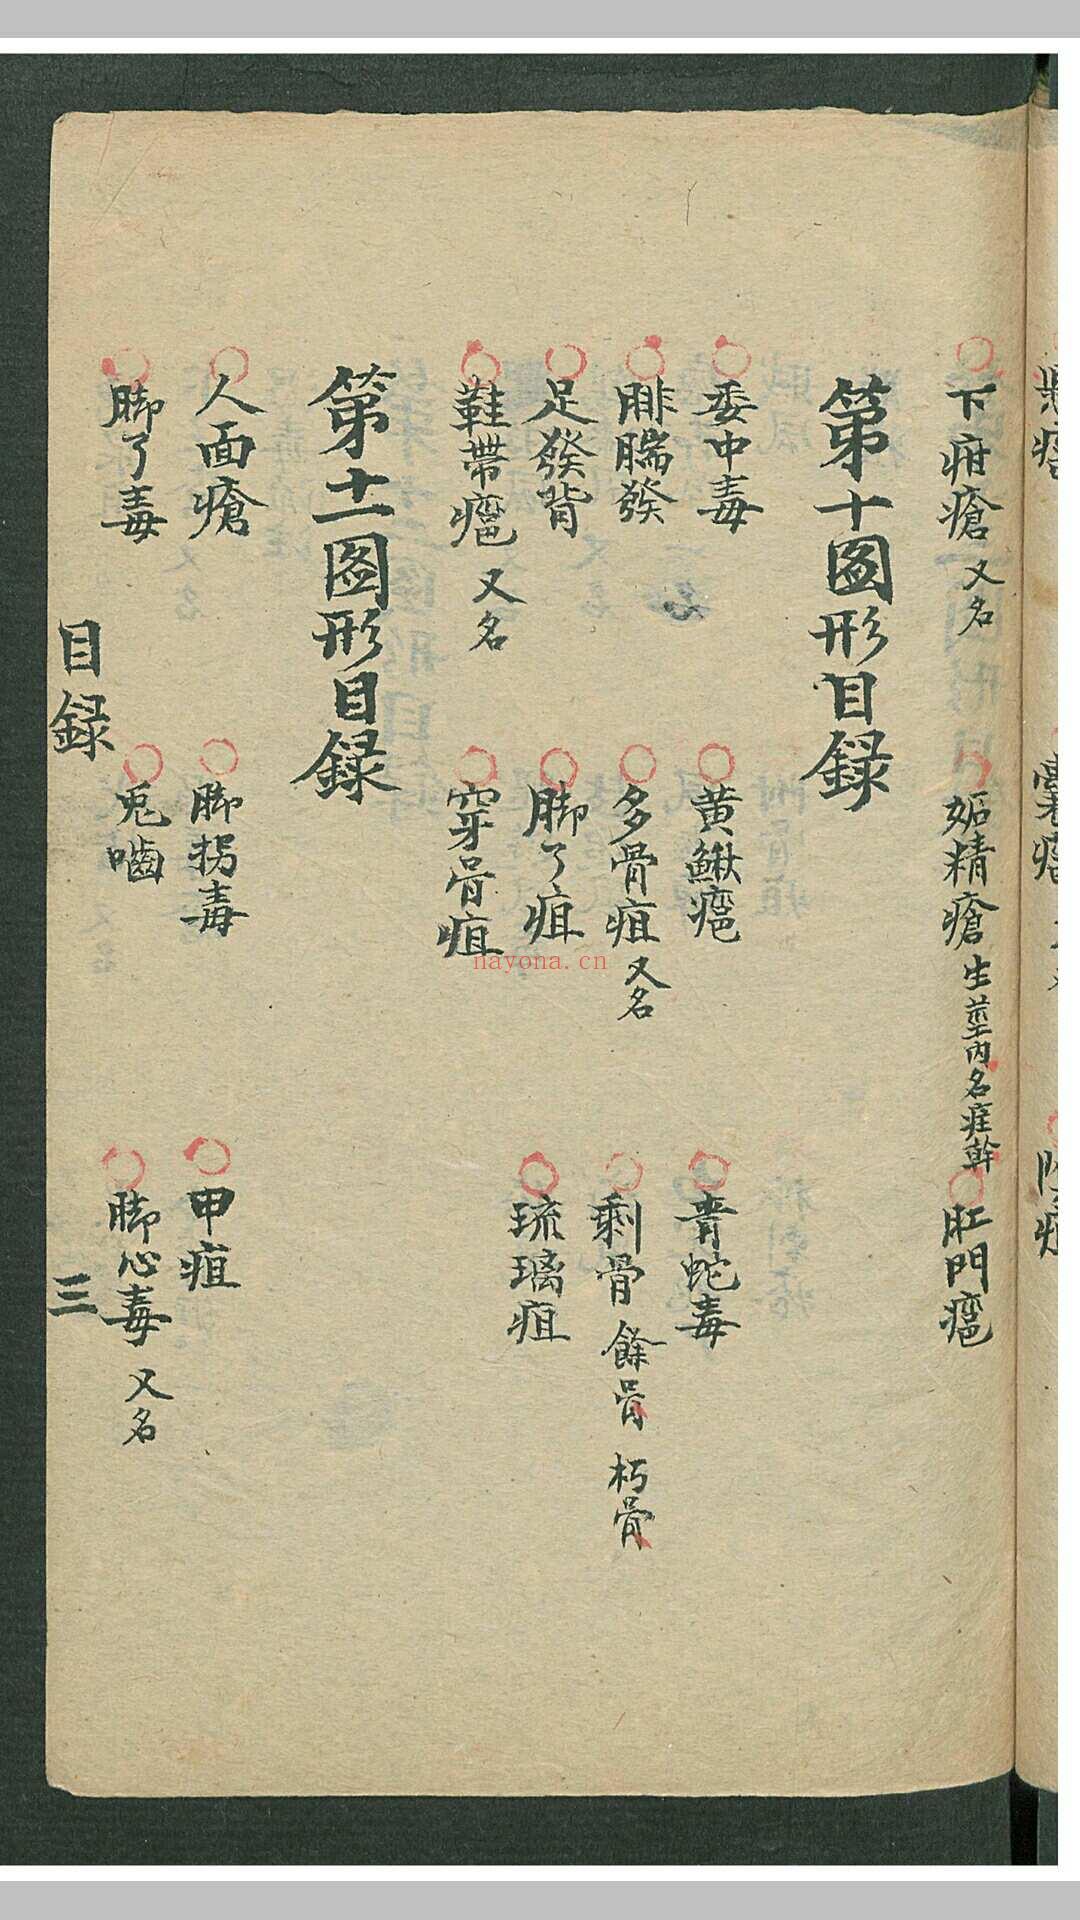 下疳瘡 又名
妬精瘡 生莖内名疰幹
肛門癰
第十图形目録
委中毒
黄鰍癰
青蛇毒
腓腨發
多骨疽 又名
剩骨 餘骨 朽骨
足發背
脚了疽
琉璃疽
鞋帶癰 又名
穿骨疽
第十一图形目録
人面瘡
脚拐毒
甲疽
脚了毒
兎嚙
脚心毒 又名
目録
三
nayona.cn